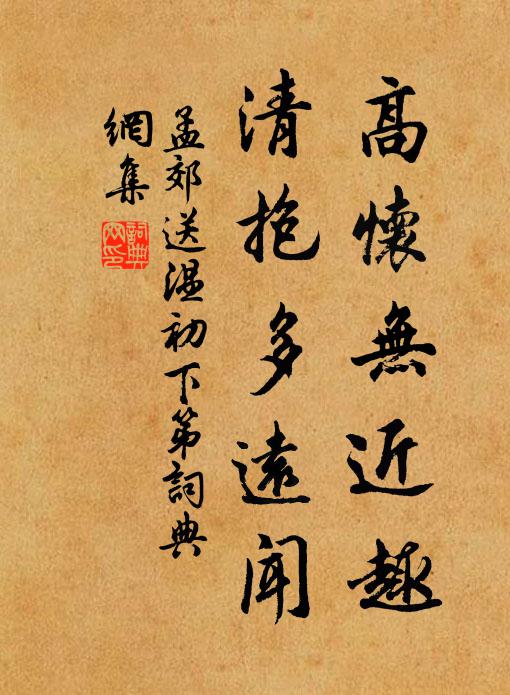 高懷無近趣
清抱多遠聞
孟郊送溫初下第詞典
網集
詞典
网印